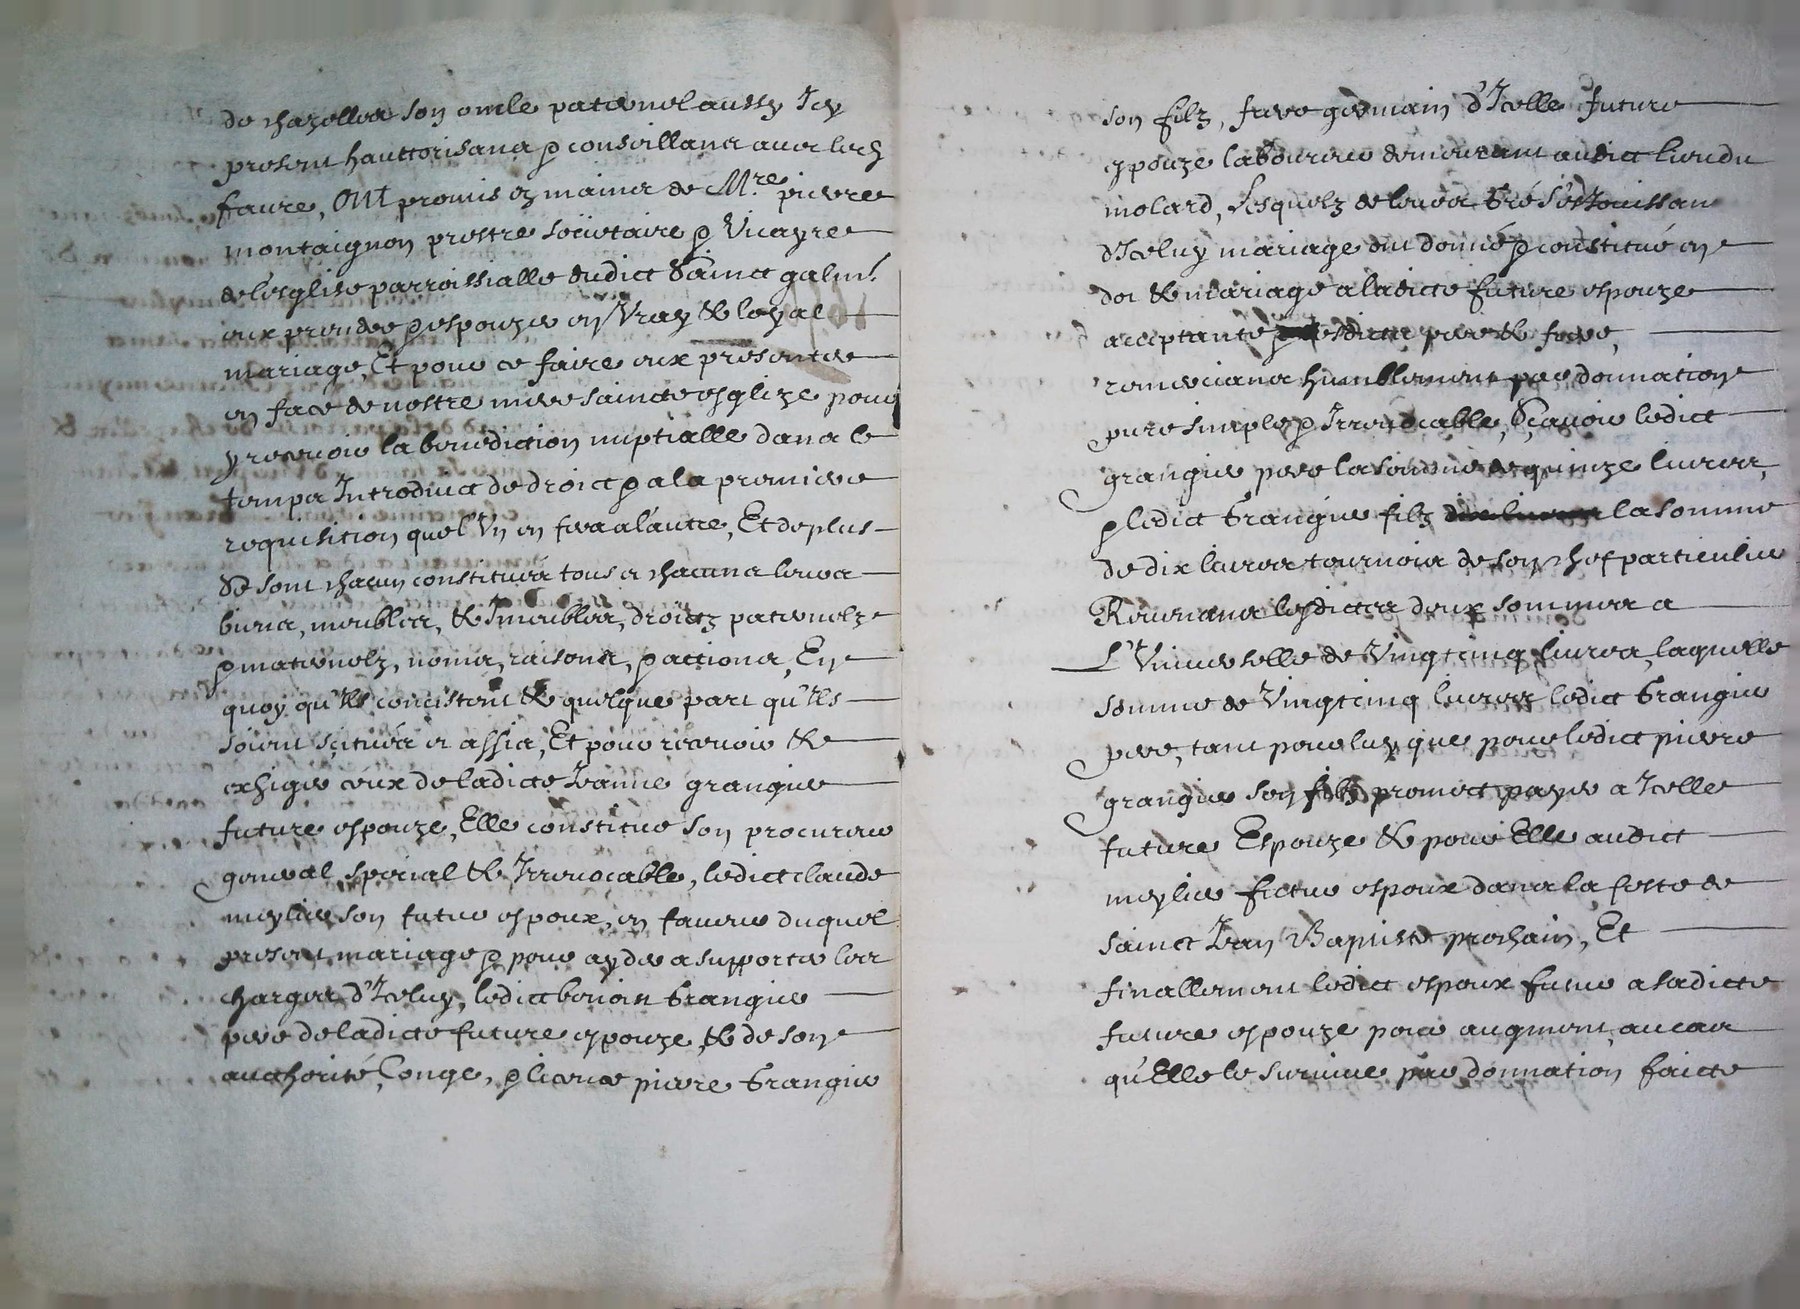 de chazelles son oncle paternel aussy Icy
present hauttorisans & conseillans avec lesd
faire, Ont promis ez mains de Mre pierre
montaignon prestre socïetaire & Vicayre
de lesglise parroissialle dudict Sainct galmi
eux prendre & espouzer en Vray & loyal
mariage, Et pour ce faire eux presenter
en face de nostre mere saincte esglize pour
y recevoir la benediction nuptialle dans le
temps Introduict de droict & a la premiere
requisition quel'Un en fera a l'autre, Et de plus
Se sont chacun constitués tous et chacuns leurs
biens, meubles, & Imeubles, droictz paternelz
& maternelz, noms, raisons, & actions, En
quoy qu'Ils concistent & quelque part qu'Ils
soient scitués et assis, Et pour recevoir &
exhiger ceux de ladicte Jeanne grangier
future espouze, Elle constitue son procureur
general special & Irrevocable, ledict claude
meylier son futur espoux, en faveur duquel
present mariage & pour ayder a supporter les
charges d'Iceluy, ledict benoist Grangier
pere de ladicte future espouze, & de son
authorité, Conge, & licence pierre Grangier
son filz, frere germain d'Icelle future
espouze laboureur demeurant audict lieu du
molard, Lesquelz de leurs gré s'esJouissans
d'Iceluy mariage ont donné & constitué en
dot & mariage a ladicte future espouze
acceptante & sesdicts pere & frere,
remercians humblement par donnation
pure simple & Irrevocable, Sçavoir ledict
grangier pere la somme de quinze livres,
& ledict Grangier filz dix livres la somme
de dix livres tournois de son chef particulier
Revenans lesdictes deux sommes a
L'Universelle de Vingt cinq livres, laquelle
somme de Vingt cinq livres ledict Grangier
pere, tant pour luy que pour ledict pierre
grangier son filz promect payer a Icelle
future Espouze & pour Elle audict
meylier futur espoux dans la feste de
sainct Jean Baptiste prochain, Et
finallement ledict espoux futur a sadicte
future espouze pour augment, au cas
qu'Elle le survive par donnation faicte